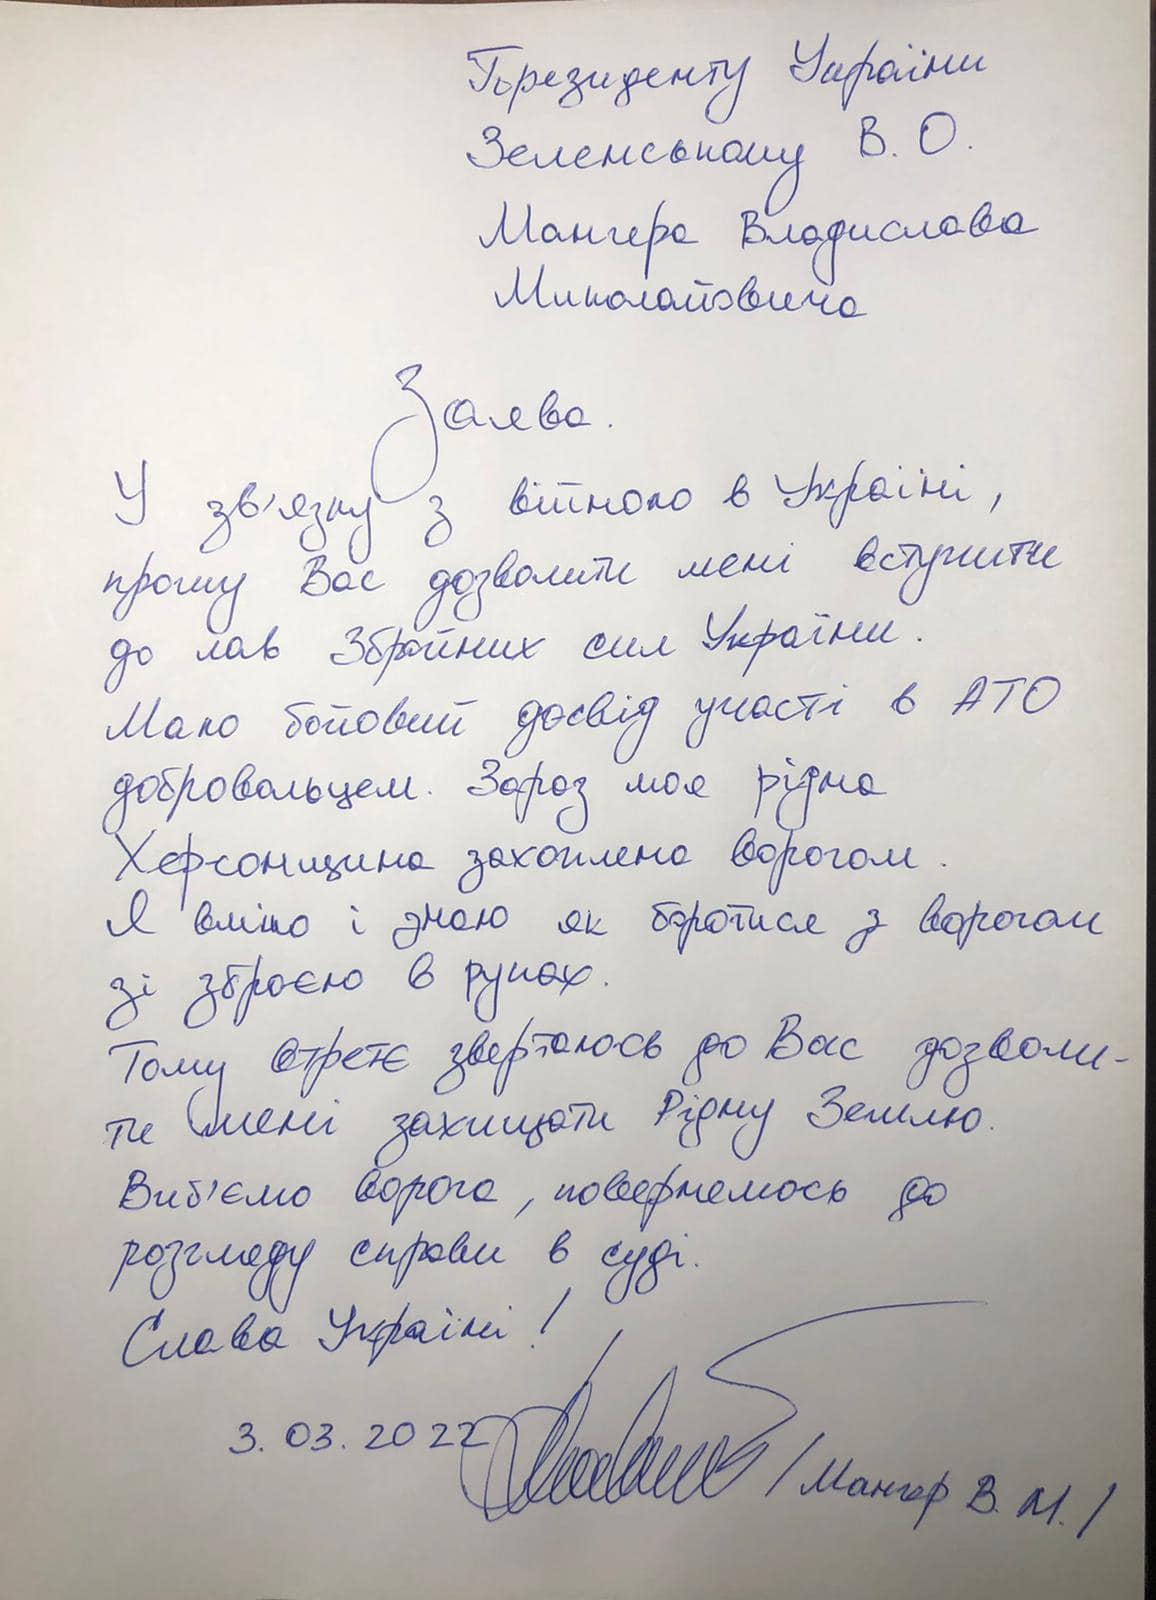 Президенту України
Зеленському В. О.
Мангера Владислава
Миколайовича
Заява.
У зв'язку з війною в Україні,
прошу Вас дозволити мені вступити
до лав Збройних сил України.
Маю бойовий досвід участі в АТО
добровольцем. Зараз моя рідна
Херсонщина захоплена ворогом.
Я вмію і знаю як боротися з ворогом
зі зброєю в руках.
Тому втретє звертаюсь до Вас дозволи-
ти мені захищати Рідну Землю.
Виб'ємо ворога, повернемось до
розгляду справи в суді.
Слава Україні!
3. 03. 2022 /Мангер В. М./